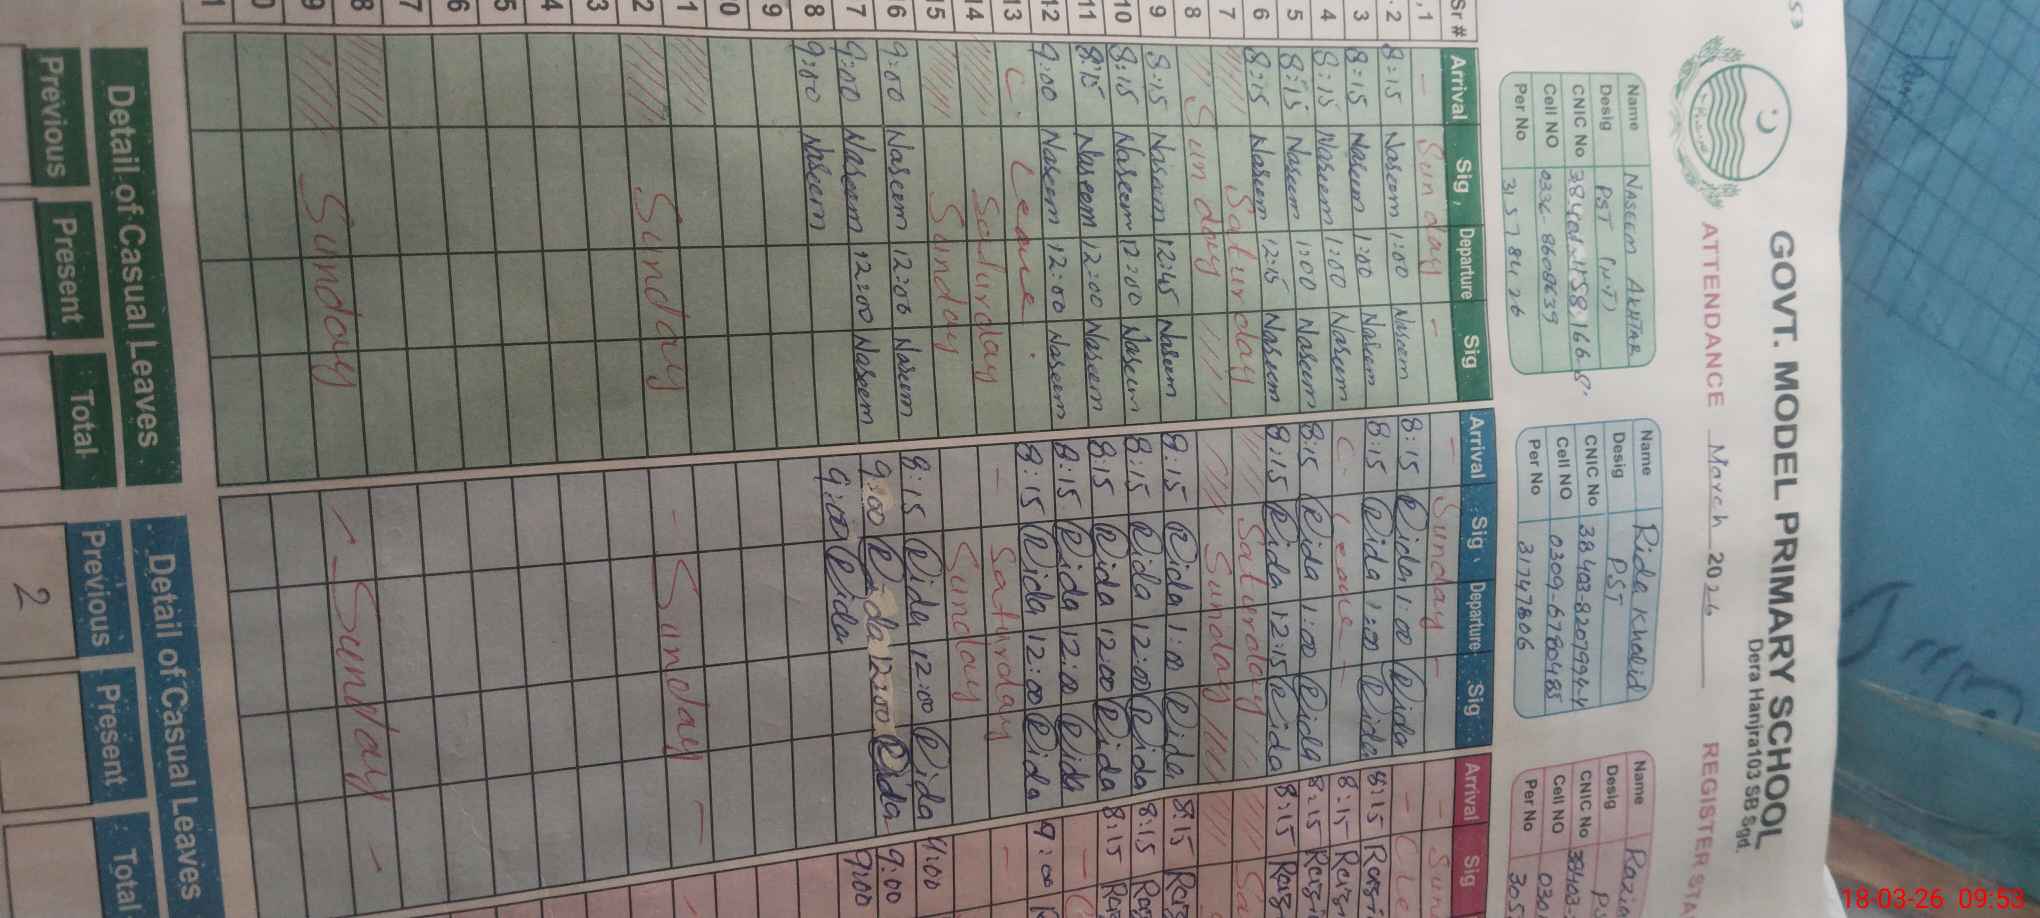 GOVT. MODEL PRIMARY SCHOOL
Dera Hanjra103 SB Sgd.
ATTENDANCE March 2026 REGISTER STA
Name NASEEM AKHTAR
Desig PST (N.T)
CNIC No
Cell NO 0336-8608639
Per No 31578426
Name Rida Khalid
Desig PST
CNIC No 38403-8207994-4
Cell NO 0309-6780485
Per No 31747806
Name Razia
Desig
CNIC No 38403-
Cell NO 030
Per No 305
Sr # Arrival Sig Departure Sig Arrival Sig Departure Sig Arrival Sig
1 - Sunday - - Sunday - - Sun
2 8:15 Naseem 1:00 Naseem 8:15 Rida 1:00 Rida - C Le
3 8:15 Naseem 1:00 Naseem 8:15 Rida 1:00 Rida 8:15
4 8:15 Naseem 1:00 Naseem C. Leave - 8:15
5 8:15 Naseem 1:00 Naseem 8:15 Rida 1:00 Rida 8:15
6 8:15 Naseem 12:15 Naseem 8:15 Rida 12:15 Rida 8:15
7 Saturday Saturday Sa
8 Sunday Sunday
9 8:15 Naseem 12:45 Naseem 8:15 Rida 1:00 Rida 8:15
10 8:15 Naseem 12:00 Naseem 8:15 Rida 12:00 Rida 8:15
11 8:15 Naseem 12:00 Naseem 8:15 Rida 12:00 Rida 8:15
12 9:00 Naseem 12:00 Naseem 8:15 Rida 12:00 Rida - C
13 C. Leave. 8:15 Rida 12:00 Rida 9:00
14 Saturday - Saturday -
15 Sunday Sunday
16 9:00 Naseem 12:00 Naseem 8:15 Rida 12:00 Rida 9:00
17 9:00 Naseem 12:00 Naseem 9:00 Rida 12:00 Rida 9:00
18 9:00 Naseem 9:00 Rida 9:00
9
0
1
2 Sunday - Sunday -
3
4
5
6
7
8
9 Sunday - Sunday -
0
1
Detail of Casual Leaves Detail of Casual Leaves
Previous Present Total Previous Present Total
2
18-03-26 09:53